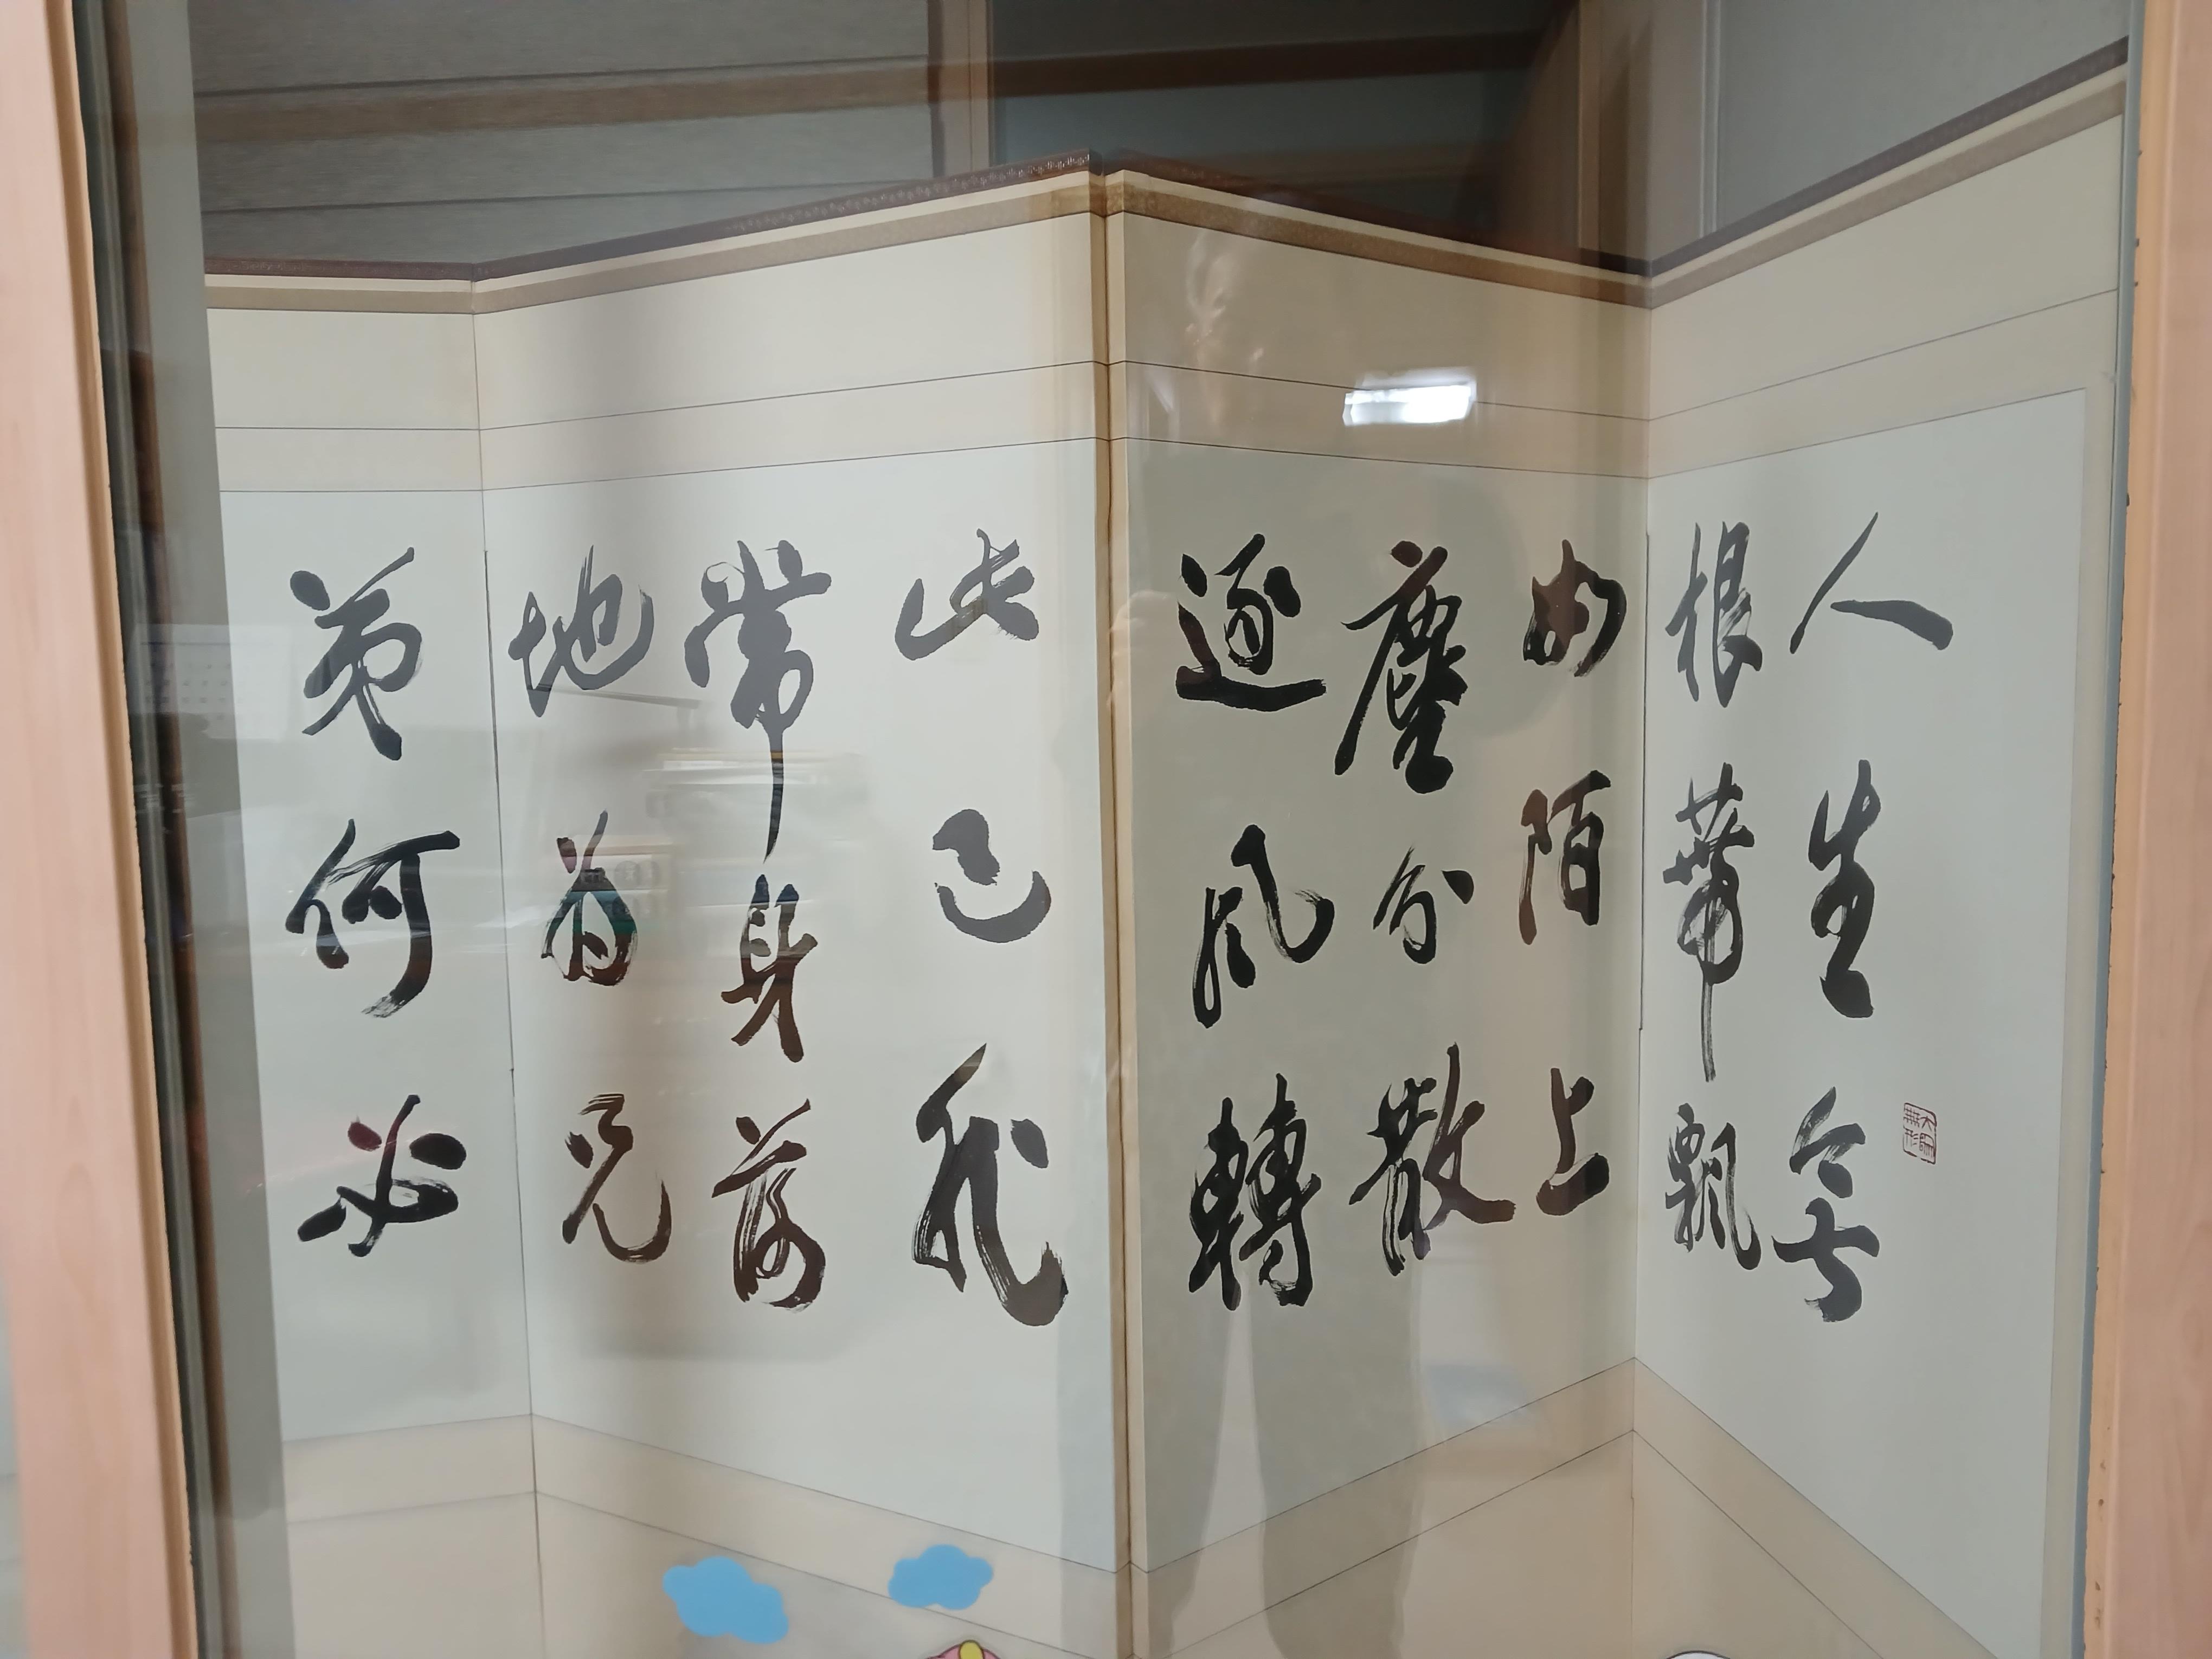 大象無形
人生無
根蔕飄
如陌上
塵分散
逐風轉
此已非
常身落
地為兄
弟何必